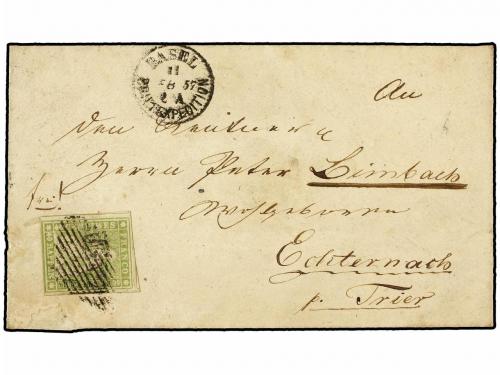 BASEL
11
FEB 57
POSTEXPEDITION
An
den Rentner
Herrn Peter Limbach
frei
Wohlgeboren
Echternach
p. Trier
FRANCO